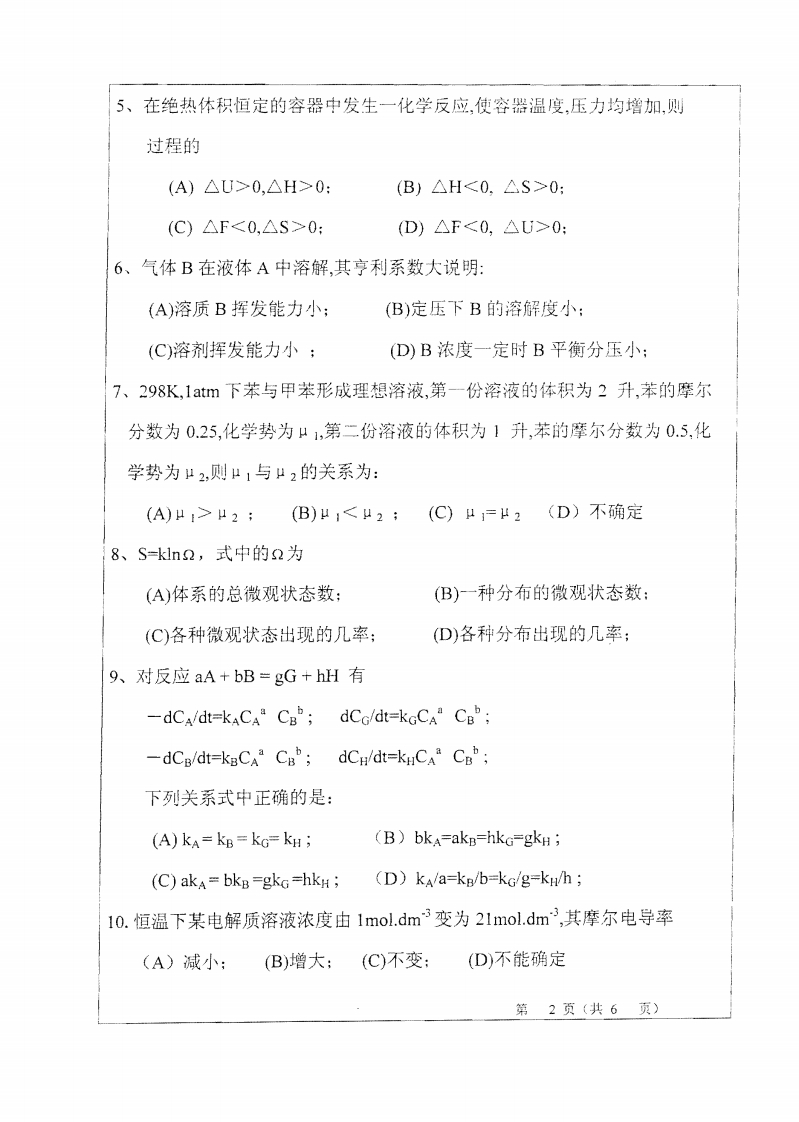 5、在绝热体积恒定的容器中发生一化学反应,使容器温度,压力均增加,则
过程的
(A) △U＞0,△H＞0; (B) △H＜0, △S＞0;
(C) △F＜0,△S＞0; (D) △F＜0, △U＞0;
6、气体 B 在液体 A 中溶解,其亨利系数大说明:
(A)溶质 B 挥发能力小; (B)定压下 B 的溶解度小;
(C)溶剂挥发能力小 ; (D) B 浓度一定时 B 平衡分压小;
7、298K,1atm 下苯与甲苯形成理想溶液,第一份溶液的体积为 2 升,苯的摩尔
分数为 0.25,化学势为μ₁,第二份溶液的体积为 1 升,苯的摩尔分数为 0.5,化
学势为μ₂,则μ₁与μ₂的关系为:
(A)μ₁＞μ₂ ; (B)μ₁＜μ₂ ; (C) μ₁=μ₂ （D）不确定
8、S=klnΩ，式中的Ω为
(A)体系的总微观状态数; (B)一种分布的微观状态数;
(C)各种微观状态出现的几率; (D)各种分布出现的几率;
9、对反应 aA + bB = gG + hH 有
－dC_A/dt=k_AC_A^a C_B^b ; dC_G/dt=k_GC_A^a C_B^b ;
－dC_B/dt=k_BC_A^a C_B^b ; dC_H/dt=k_HC_A^a C_B^b ;
下列关系式中正确的是:
(A) k_A = k_B = k_G= k_H ; （B）bk_A=ak_B=hk_G=gk_H ;
(C) ak_A = bk_B =gk_G =hk_H ; （D）k_A/a=k_B/b=k_G/g=k_H/h ;
10. 恒温下某电解质溶液浓度由 1mol.dm⁻³ 变为 21mol.dm⁻³,其摩尔电导率
（A）减小; (B)增大; (C)不变; (D)不能确定
第 2 页（共 6 页）